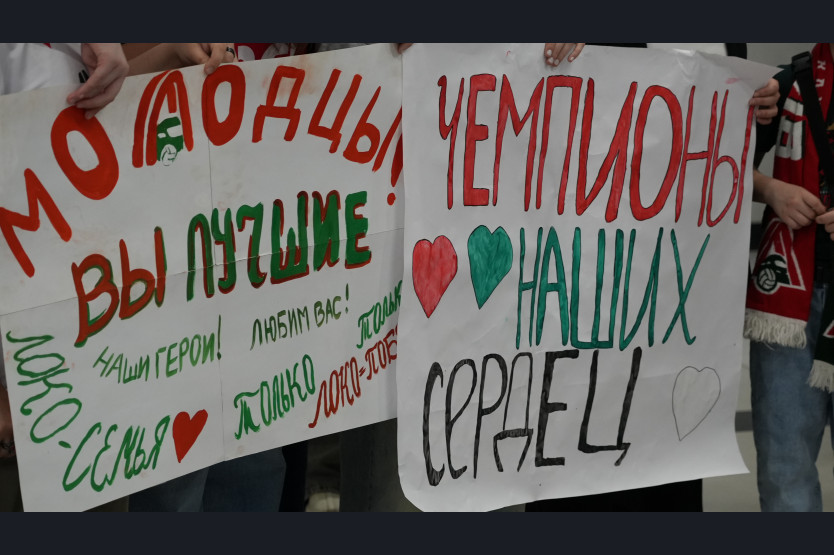 МОЛОДЦЫ!
ВЫ ЛУЧШИЕ
НАШИ ГЕРОИ!
ЛЮБИМ ВАС!
ЛОКО-
СЕМЬЯ
ТОЛЬКО
ТОЛЬКО
ЛОКО-ПОБ
ЧЕМПИОНЫ
НАШИХ
СЕРДЕЦ